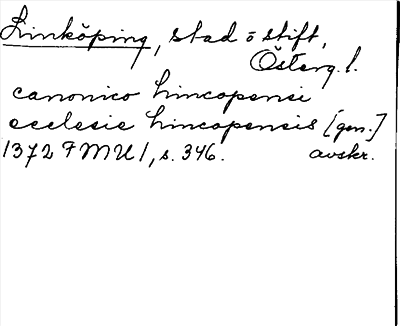 Linköping, stad o stift,
Österg. l.
canonico lincopensi
ecclesie lincopensis [gen.]
1372 FMU 1, s. 346. avskr.